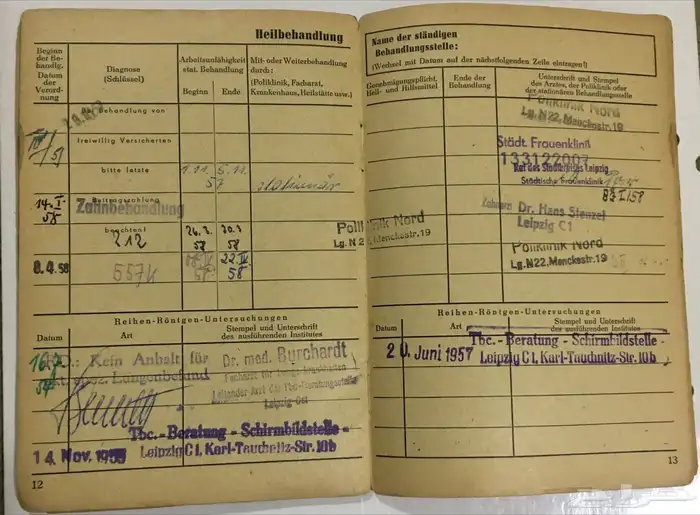 Heilbehandlung
Beginn
der Be-
handlg.
Datum
der
Verord-
nung
Diagnose
(Schlüssel)
Arbeitsunfähigkeit
stat. Behandlung
Beginn
Ende
Mit- oder Weiterbehandlung
durch:
(Poliklinik, Facharzt,
Krankenhaus, Heilstätte usw.)
Behandlung von
freiwillig Versicherten
bitte letzte
1.11.
57
5.11.
stationär
14.I.
58
Beitragszahlung
Zahnbehandlung
beachten!
212
26.3.
58
30.3
58
Poliklinik Nord
Lg. N 22, Menckestr. 19
8.4.58
557K
22.IV
58
Reihen-Röntgen-Untersuchungen
Datum
Art
Stempel und Unterschrift
des ausführenden Institutes
16.7
57
Kein Anhalt für
Lungenbefund
Dr. med. Burchardt
Leipzig-Ost
14 Nov. 1958
Tbc.-Beratung - Schirmbildstelle -
Leipzig C 1, Karl-Tauchnitz-Str. 10b
12
Name der ständigen
Behandlungsstelle:
(Wechsel mit Datum auf der nächstfolgenden Zeile eintragen!)
Genehmigungspflicht.
Heil- und Hilfsmittel
Ende der
Behandlung
Unterschrift und Stempel
des Arztes, der Poliklinik oder
der stationären Behandlungsstelle
Poliklinik Nord
Lg. N 22, Menckestr. 19
Städt. Frauenklinik
133122007
Rat des Stadtkreises Leipzig
Städtische Frauenklinik
Zahnarzt Dr. Hans Stenzel
Leipzig C1
Poliklinik Nord
Lg. N22, Menckestr. 19
Reihen-Röntgen-Untersuchungen
Datum
Art
Stempel und Unterschrift
des ausführenden Institutes
20. Juni 1957
Tbc.-Beratung - Schirmbildstelle -
Leipzig C 1, Karl-Tauchnitz-Str. 10b
13